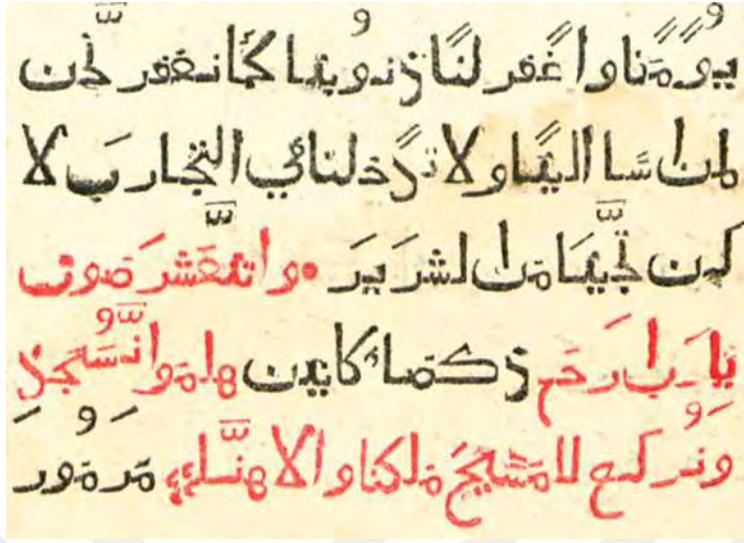 يومنا واغفر لنا ذنوبنا كما نغفر نحن
لمن اسا الينا ولا تدخلنا في التجارب لا
كن نجينا من الشرير • واثنعشر صوت
يا رب ارحم ذكصا كانين هلموا نسجد
ونركع للمسيح ملكنا والاهنا مزمور